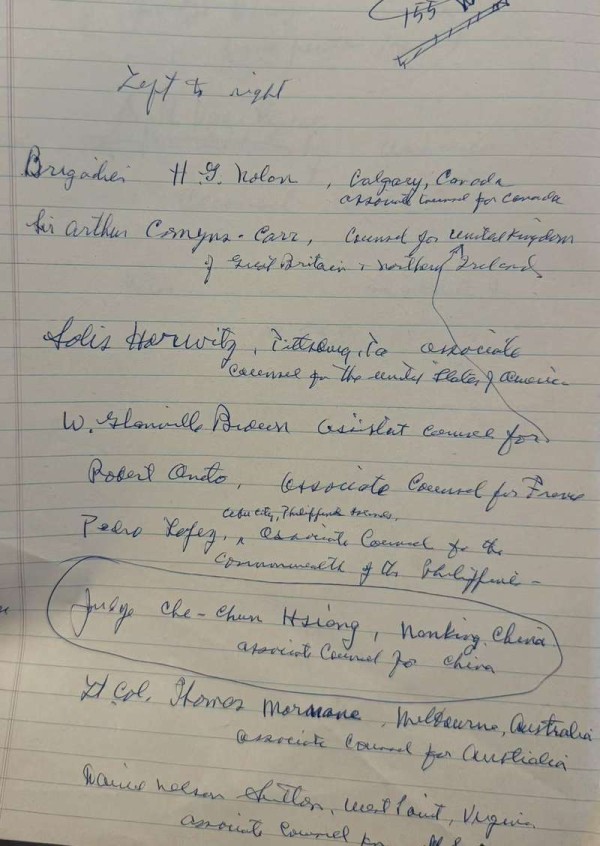 155 W
Left to right
Brigadier H.G. Nolan, Calgary, Canada
associate Counsel for Canada
Sir Arthur Comyns-Carr, Counsel for United Kingdom
of Great Britain & Northern Ireland
Solis Horwitz, Pittsburg, Pa associate
Counsel for the United States of America
W. Glanville Brown assistant counsel for
Robert Oneto, associate Counsel for France
Cebu City, Philippine
Pedro Lopez, ^ associate Counsel for the
Commonwealth of the Philippine -
Judge Che-Chun Hsiang, Nanking, China
associate Counsel for China
Lt Col. Thomas Mornane, Melbourne, Australia
associate Counsel for Australia
David Nelson Sutton, West Point, Virginia
associate Counsel for